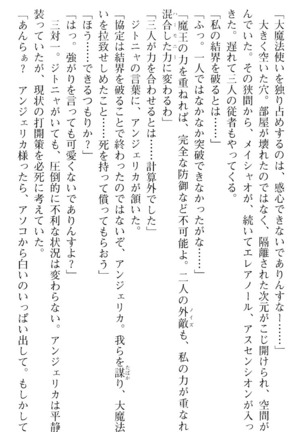 「大魔法使いを独り占めするのは、感心できないでありんすなぁ……」
大きく空いた穴。部屋が壊れたのではなく、隔離された次元がこじ開けられ、空間が
んでいた。その狭間から、メイシャオが、続いてエレアノール、アスセンシオンが入っ
きた。遅れて三人の従者もやってくる。
「私の結界を破るとは……」
「ふっ。一人ではなかなか突破できなかったがな……」
「魔王の力を重ねれば、完全な防御など不可能よ。二人の外敵も、私の力が重なれ
混合した力に変わるわ」
「三人が力を合わせるとは……計算外でした」
ジトニャの言葉に、アンジェリカが頷いた。
「協定は結界を破ることで終わったのではないぞ、アンジェリカ。我らを謀り、大魔法
いを拉致せしめたこと……死を持って償ってもらおう」
「ほう……できるつもりか？」
「はっ。強がりを言っても可愛くないでありんすよ？」
三対一。ジトニャがいても、圧倒的に不利な状況は変わらない。アンジェリカは平静
装っていたが、現状の打開策を必死に考えていた。
「あんらぁ？　アンジェリカ様ったら、アソコから白いのいっぱい出して。もしかして